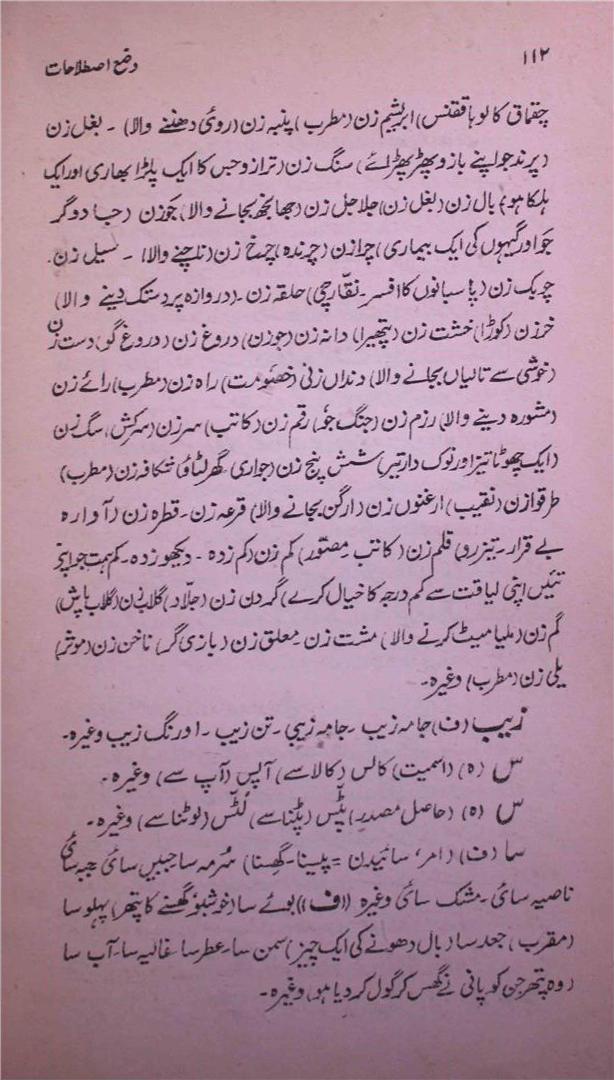 ۱۱۲
وضع اصطلاحات
چقماق کا لوہا ققنس) ابریشم زن (مطرب) پنبہ زن (روئی دھننے والا) ۔ بغل زن
(پرند جو اپنے بازو پھڑپھڑائے) سنگ زن (ترازو جس کا ایک پلڑا بھاری اور ایک
ہلکا ہو) بال زن (بغل زن) جلاجل زن (جھانجھ بجانے والا) جوزن (جادوگر
جو اور گیہوں کی ایک بیماری) چرازن (چرندہ) چرخ زن (ناچنے والا) ۔ سیل زن۔
چوبک زن (پاسبانوں کا افسر۔ نقارچی) حلقہ زن ۔ (دروازہ پر دستک دینے والا)
خرزن (کوڑا) خشت زن (پتھیرا) دانہ زن (جوزن) دروغ زن (دروغ گو) دست زن
(خوشی سے تالیاں بجانے والا) دنداں زنی (خصومت) راہ زن (مطرب) رائے زن
(مشورہ دینے والا) رزم زن (جنگ جو) رقم زن (کاتب) سرزن (سرکش) سگ زن
(ایک چھوٹا تیز اور نوک دار تیر) شش پنج زن (جواری۔ گھر لٹاؤ) شکافہ زن (مطرب)
طرقوازن (نقیب) ارغنوں زن (ارگن بجانے والا) قرعہ زن ۔ قطرہ زن (آوارہ
بے قرار۔ تیز رو) قلم زن (کاتب مصوّر) کم زن (کم زدہ ۔ دیکھو زدہ ۔ کم ہمت جو اپنے
تئیں اپنی لیاقت سے کم درجہ کا خیال کرے) گردن زن (جلّاد) گلاب زن (گلاب پاش)
گم زن (ملیا میٹ کرنے والا) مشت زن ۔ معلق زن (بازی گر) ناخن زن (موثر)
یلی زن (مطرب) وغیرہ ۔
زیب (ف) جامہ زیب ۔ جامہ زیبی ۔ تن زیب ۔ اورنگ زیب وغیرہ۔
س (ہ) (اسمیت) کالس (کالا سے) آپس (آپ سے) وغیرہ ۔
س (ہ) (حاصل مصدر) پٹس (پٹنا سے) لُٹس (لوٹنا سے) وغیرہ ۔
سا (ف) (امر، سائیدن = پیسنا۔ گھسنا) سُرمہ سا جبیں سائی جبہ سائی
ناصیہ سائی ۔ مشک سائی وغیرہ ((ف)) بوئے سا (خوشبو گھسنے کا پتھر) پہلو سا
(مقرب) جعد سا (بال دھونے کی ایک چیز) سمن سا۔ عطر سا غالیہ سا۔ آب سا
(وہ پتھر جن کو پانی نے گھس کر گول کر دیا ہو) وغیرہ ۔